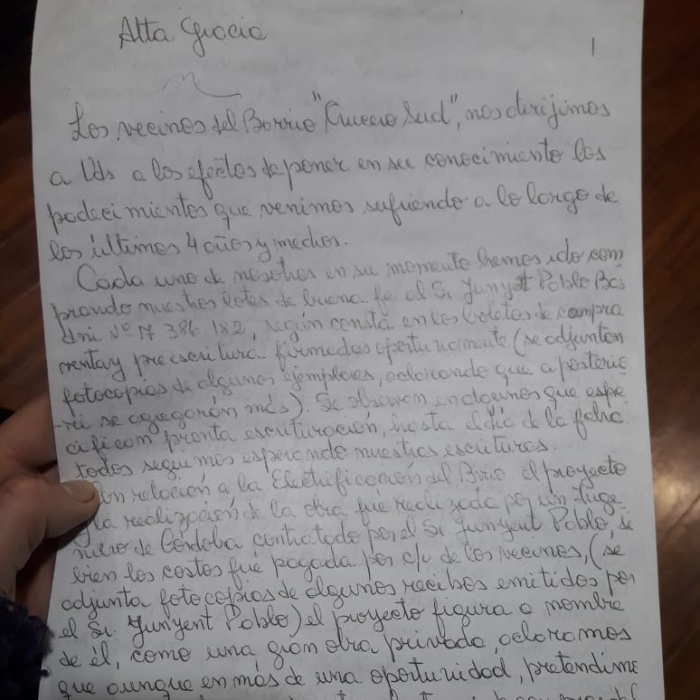 Alta Gracia
1
Los vecinos del Barrio "Crucero Sud", nos dirijimos
a Uds a los efectos de poner en su conocimiento los
padecimientos que venimos sufriendo a lo largo de
los últimos 4 años y medios.
Cada uno de nosotros en su momento hemos ido com
prando nuestros lotes de buena fe al Sr. Junyent Pablo
dni Nº 17 386 182, según consta en los boletos de compra
venta y preescritura firmados oportunamente (se adjuntan
fotocopias de algunos ejemplares, aclarando que a posterio
ri se agregarán más). Se observan en algunos que espe
cifican pronta escrituracion, hasta el día de la fecha
todos seguimos esperando nuestras escrituras.
Con relación a la Electrificación del Brio el proyecto
y la realización de la obra fue realizada por un Inge
niero de Córdoba contratado por el Sr. Junyent Pablo, se
bien los costos fué pagada por c/u de los vecinos, (se
adjunta fotocopias de algunos recibos emitidos por
el Sr. Junyent Pablo) el proyecto figura a nombre
de él, como una gran obra privada, aclaramos
que aunque en más de una oportunidad, pretendime